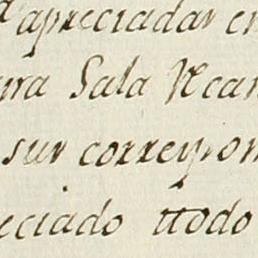 apreciadas en
rra Sala Rcam
sus correspon
eciado ttodo